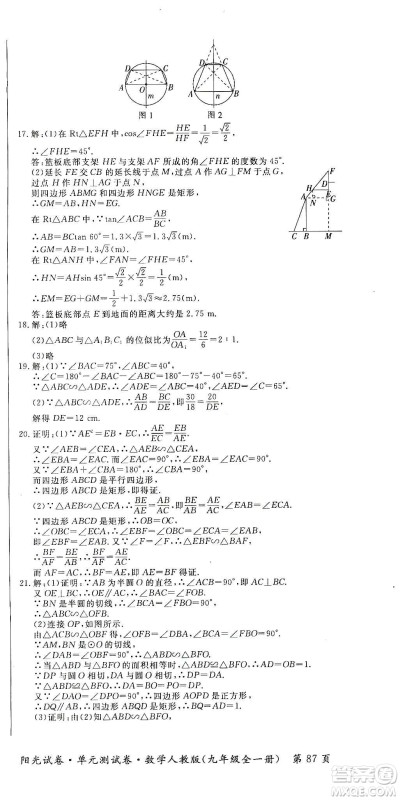 D C
A O B
m
图 1
D C
A B
n
图 2
17.解:(1)在 Rt△EFH 中,cos∠FHE=HE/HF=1/√2=√2/2,
∴∠FHE=45°.
答:篮板底部支架 HE 与支架 AF 所成的角∠FHE 的度数为 45°.
(2)延长 FE 交 CB 的延长线于点 M,过点 A 作 AG⊥FM 于点
G,过点 H 作 HN⊥AG 于点 N,
则四边形 ABMG 和四边形 HNGE 是矩形,
∴GM=AB,HN=EG.
在 Rt△ABC 中,∵tan∠ACB=AB/BC,
∴AB=BCtan 60°=1.3×√3=1.3√3(m).
∴GM=AB=1.3√3(m).
在 Rt△ANH 中,∠FAN=∠FHE=45°,
∴HN=AHsin 45°=√2/2×√2/2=1/2(m).
∴EM=EG+GM=1/2+1.3√3≈2.75(m).
答:篮板底部点 E 到地面的距离大约是 2.75 m.
18.解:(1)略
(2)△ABC 与△A₁B₁C₁ 的位似比为 OA/OA₁=12/6=2∶1.
(3)略
19.解:(1)∵∠BAC=75°,∠ABC=40°,
∴∠C=180°-∠BAC-∠ABC=180°-75°-40°=65°.
∵△ABC∽△ADE,∴∠AED=∠C=65°.
(2)∵△ABC∽△ADE,∴AB/AD=BC/DE,即30/18=20/DE.
解得 DE=12 cm.
20.证明:(1)∵AE²=EB·EC,∴AE/EC=EB/AE.
又∵∠AEB=∠CEA,∴△AEB∽△CEA.
∴∠EBA=∠EAC.而∠EAC=90°,∴∠EBA=∠EAC=90°.
又∵∠EBA+∠CBA=180°,∴∠CBA=90°.
而四边形 ABCD 是平行四边形,
∴四边形 ABCD 是矩形,即得证.
(2)∵△AEB∽△CEA,∴BE/AE=AB/AC,∠EAB=∠ECA.
∵四边形 ABCD 是矩形,∴OB=OC.
∴∠OBC=∠ECA.∴∠EBF=∠OBC=∠ECA=∠EAB.
即∠EBF=∠EAB.又∵∠F=∠F,∴△EBF∽△BAF.
∴BF/AF=BE/AB.∴BF/AF=AE/AC,即得证.
21.解:(1)证明:∵AB 为半圆 O 的直径,∴∠ACB=90°,即 AC⊥BC.
又 OE⊥BC,∴OE∥AC.∴∠BAC=∠FOB.
∵BN 是半圆的切线,∴∠OBF=∠ACB=90°.
∴△ABC∽△OFB.
(2)连接 OP,如图所示.
由△ABC∽△OFB 得∠OFB=∠ABC.
∵AM,BN 是⊙O 的切线,
∴∠DAB=∠OBF=90°.∴AM∥BN.
∴△ABD∽△BFO.
∴当△ABD 与△BFO 的面积相等时,△ABD≌△BFO.
∴AD=BO.又∵DP 为圆 O 的切线,∴DA=DP.
∵DP 与圆 O 相切,∴DP⊥OP.
∵OA=OP,∴OA=OP=DA=DP.
又∵∠DAO=90°,∴四边形 AOPD 是正方形.
∴DQ∥AB.
(3)证明:由△ABD∽△BFO
F
E
H
A
N
G
C B M
阳光试卷·单元测试卷·数学人教版(九年级全一册) 第 87 页